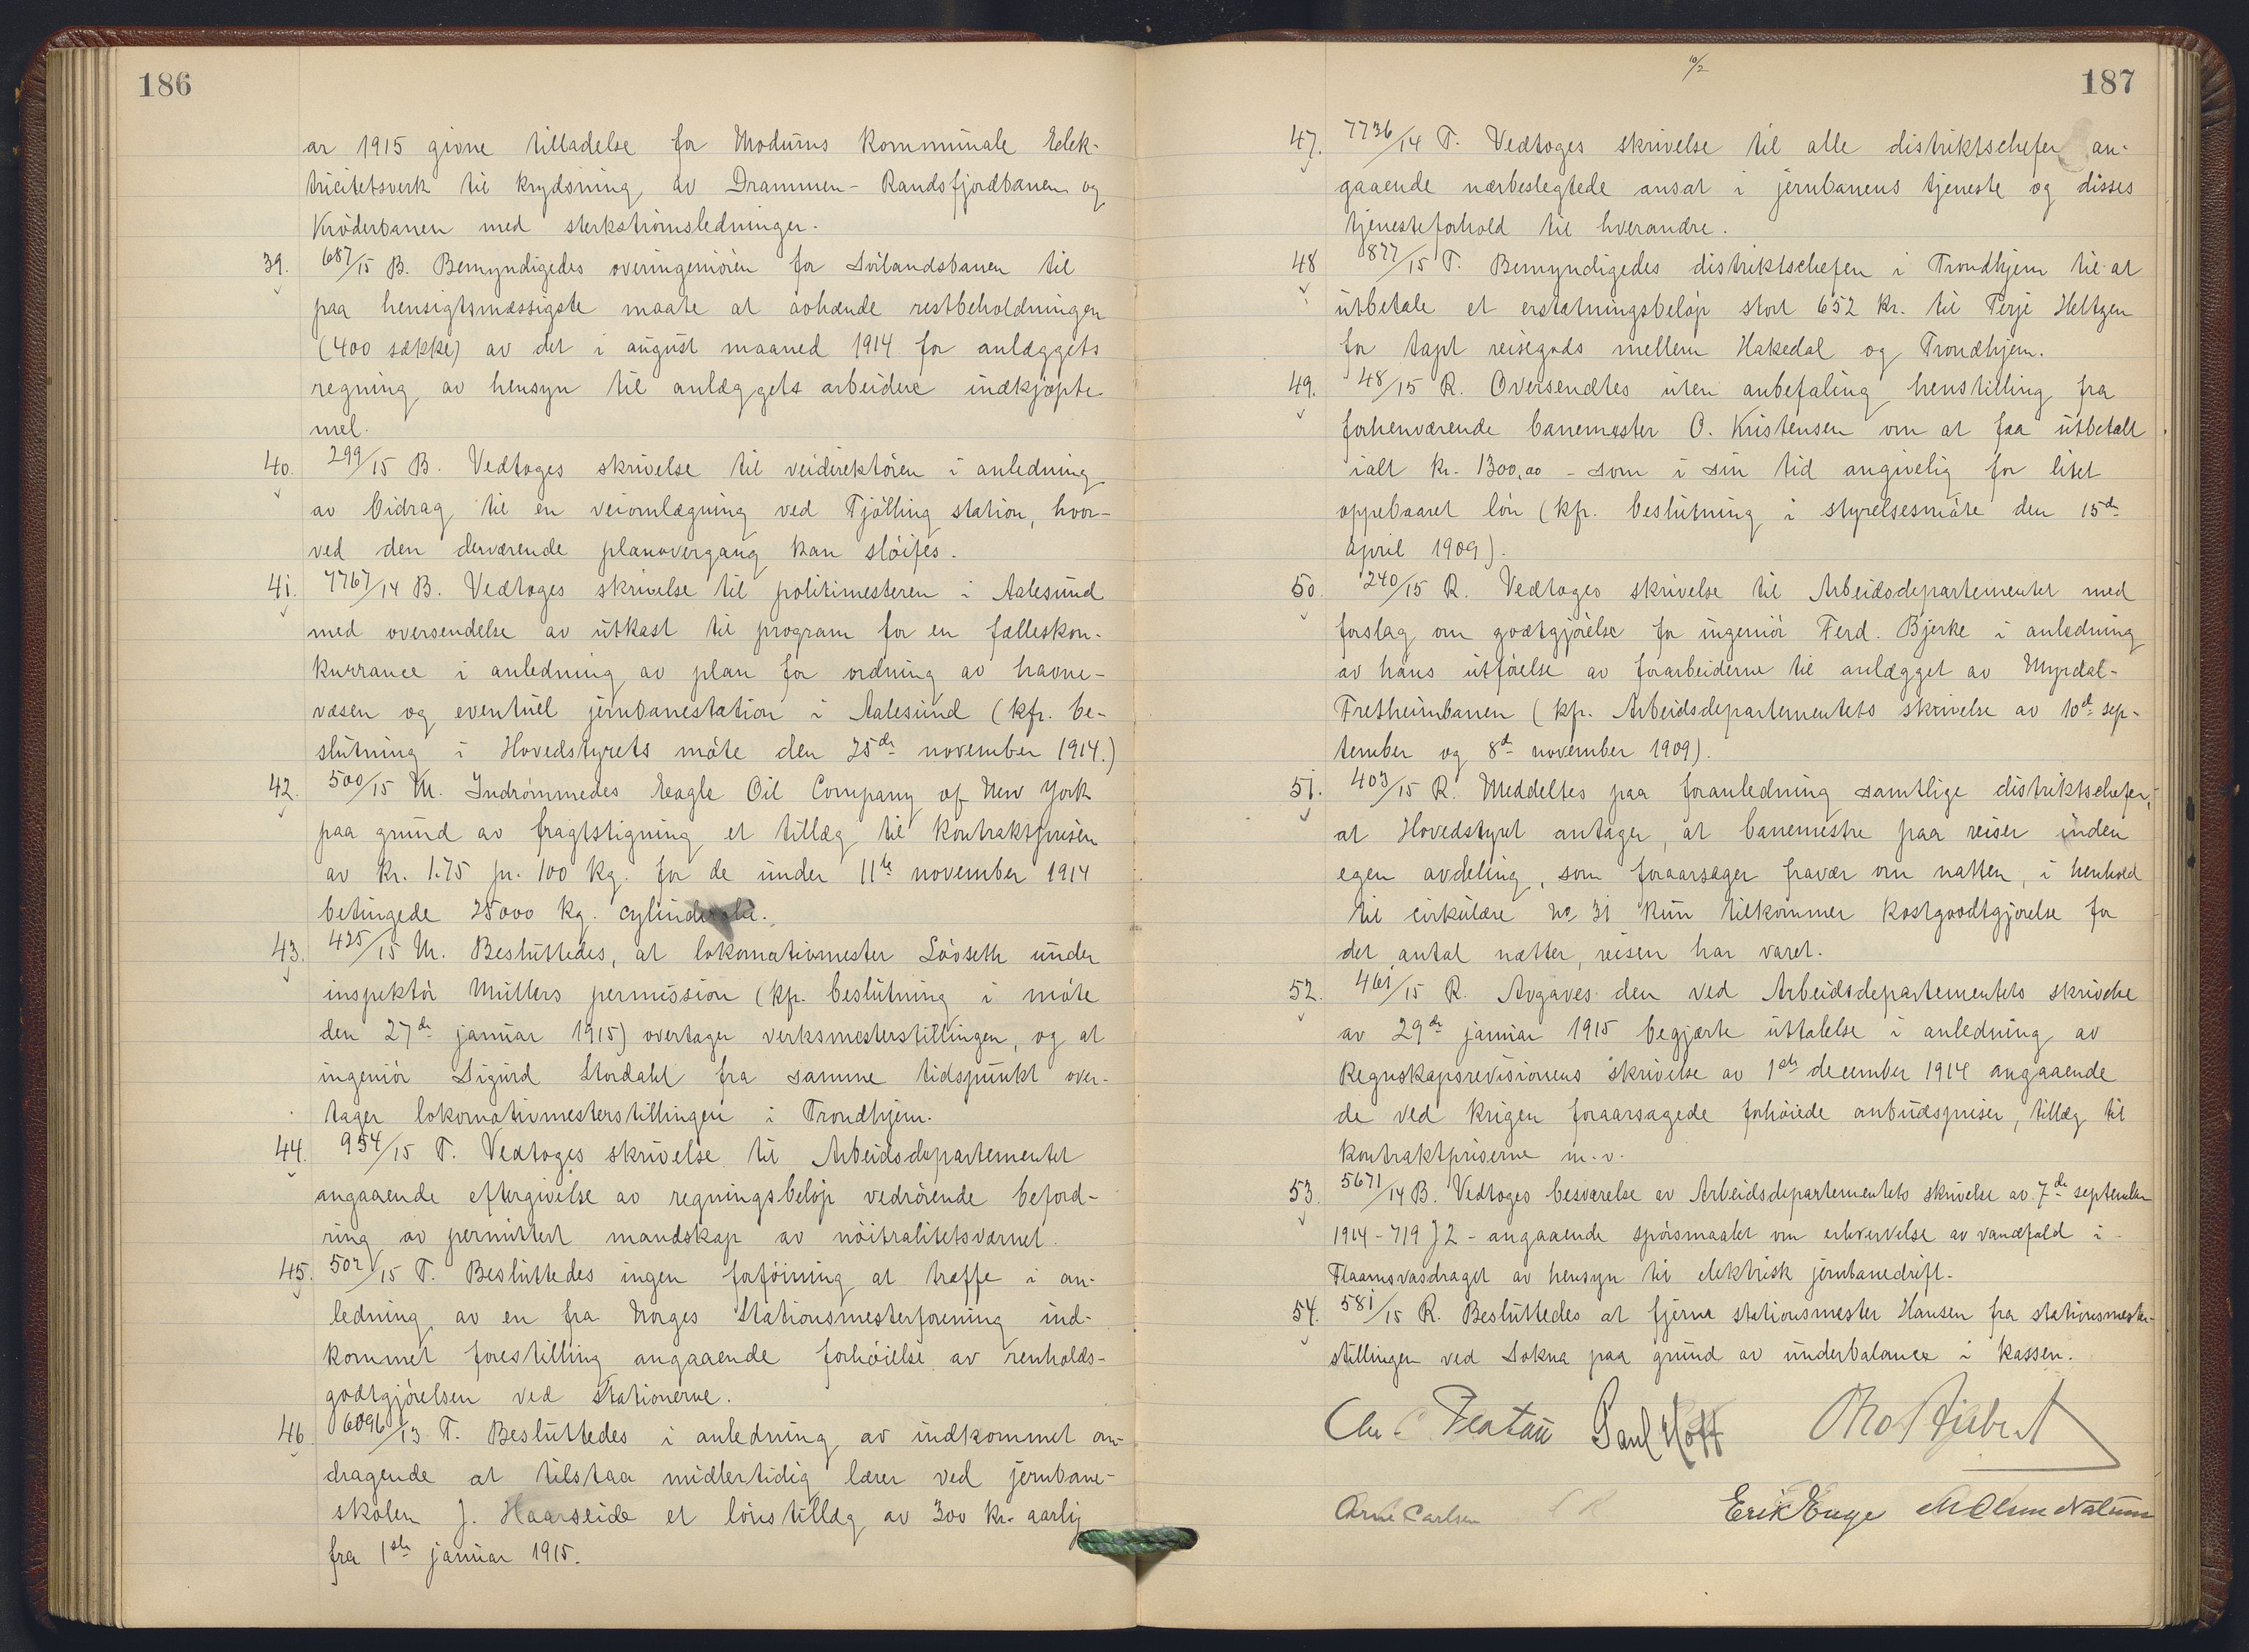 186
ar 1915 givne tilladelse for Modums kommunale Elek-
tricitetsverk til krydsning av Drammen-Randsfjordbanen og
Kröderbanen med sterkströmsledninger.
39. 687/15 B. Bemyndigedes overingeniören for Sörlandsbanen til
paa hensigtsmæssigste maate at avhænde restbeholdningen
(400 sække) av det i august maaned 1914 for anlæggets
regning av hensyn til anlæggets arbeidere indkjöpte
mel.
40. 299/15 B. Vedtoges skrivelse til veidirektören i anledning
av bidrag til en veiomlægning ved Tjölling station, hvor-
ved den derværende planovergang kan slöifes.
41. 7767/14 B. Vedtoges skrivelse til politimesteren i Aalesund
med oversendelse av utkast til program for en fælleskon-
kurrance i anledning av plan for ordning av havne-
væsen og eventuel jernbanestation i Aalesund (kfr. be-
slutning i Hovedstyrets möte den 25de november 1914.)
42. 500/15 M. Indrömmedes Eagle Oil Company of New York
paa grund av fragtstigning et tillæg til kontraktprisen
av kr. 1.75 pr. 100 kg. for de under 11te november 1914
betingede 25000 kg. cylinderolie.
43. 425/15 M. Besluttedes, at lokomotivmester Lövseth under
inspektör Müllers permission (kfr. beslutning i möte
den 27de januar 1915) overtager verksmesterstillingen, og at
ingeniör Sigurd Stordahl fra samme tidspunkt over-
tager lokomotivmesterstillingen i Trondhjem.
44. 954/15 T. Vedtoges skrivelse til Arbeidsdepartementet
angaaende eftergivelse av regningsbelöp vedrörende beford-
ring av permittert mandskap av nöitralitetsværnet.
45. 502/15 T. Besluttedes ingen forföining at træffe i an-
ledning av en fra Norges Stationsmesterforening ind-
kommet forestilling angaaende forhöielse av renholds-
godtgjörelsen ved Stationerne.
46. 6096/13 T. Besluttedes i anledning av indkommet an-
dragende at tilstaa midlertidig lærer ved jernbane-
skolen J. Haarseide et lönstillæg av 300 kr. aarlig
fra 1ste januar 1915.
10/2
187
47. 7736/14 T. Vedtoges skrivelse til alle distriktschefer an-
gaaende nærbeslegtede ansat i jernbanens tjeneste og disses
tjenesteforhold til hverandre.
48 877/15 T. Bemyndigedes distriktschefen i Trondhjem til at
utbetale et erstatningsbelöp stort 652 kr. til Terje Heltzen
for tapt reisegods mellem Hakedal og Trondhjem.
49. 48/15 R. Oversendtes uten anbefaling henstilling fra
forhenværende banemester O. Kristensen om at faa utbetalt
ialt kr. 1300,00 - som i sin tid angivelig for litet
oppebaaret lön (kfr. beslutning i styrelsesmöte den 15de
april 1909).
50. 240/15 R. Vedtoges skrivelse til Arbeidsdepartementet med
forslag om godtgjörelse for ingeniör Ferd. Bjerke i anledning
av hans utförelse av forarbeiderne til anlægget av Myrdal-
Fretheimbanen (kfr. Arbeidsdepartementets skrivelse av 10de sep-
tember og 8de november 1909).
51. 403/15 R. Meddeltes paa foranledning samtlige distriktschefer,
at Hovedstyret antager, at banemestre paa reiser inden
egen avdeling, som foraarsager fravær om natten, i henhold
til cirkulære No 31 kun tilkommer kostgodtgjörelse for
det antal nætter, reisen har varet.
52. 461/15 R. Avgaves den ved Arbeidsdepartementets skrivelse
av 29de januar 1915 begjærte uttalelse i anledning av
Regnskapsrevisionens skrivelse av 1ste december 1914 angaaende
de ved krigen foraarsagede forhöiede anbudspriser, tillæg til
kontraktpriserne m. v.
53. 5671/14 B. Vedtoges besvarelse av Arbeidsdepartementets skrivelse av 7de september
1914 - 719 J2 - angaaende spörsmaalet om erhvervelse av vandfald i
Flaamsvasdraget av hensyn til elektrisk jernbanedrift.
54. 581/15 R. Besluttedes at fjerne stationsmester Hansen fra stationsmester-
stillingen ved Sokna paa grund av underbalance i kassen.
Chr C Platou Paul Hoff
Arne Carlsen Erik Enge